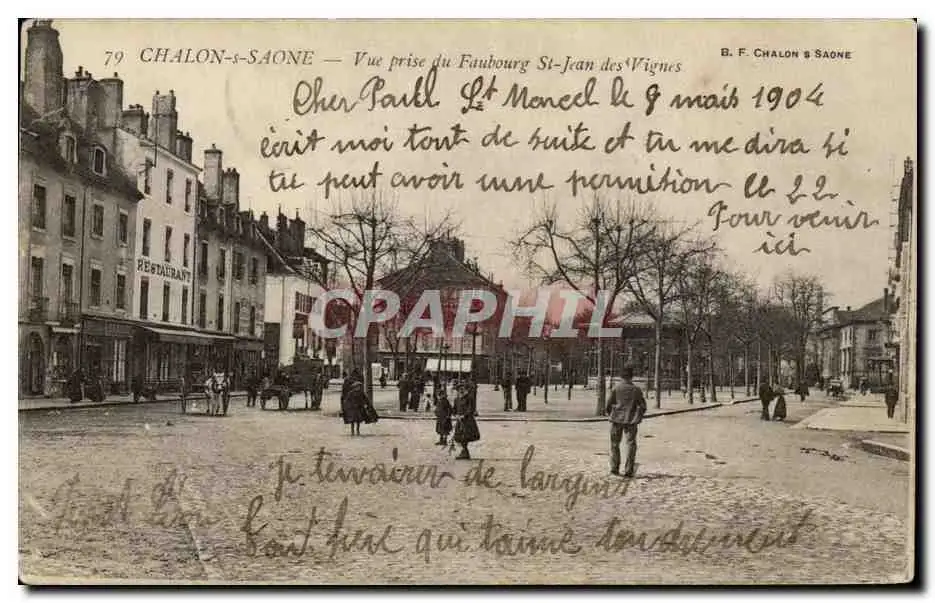 79 CHALON-s-SAONE — Vue prise du Faubourg St-Jean des Vignes
B. F. CHALON S SAONE
Cher Paul St Marcel le 9 mais 1904
écrit moi tout de suite et tu me dira si
tu peut avoir une permission le 22
Pour venir
ici
RESTAURANT
CPARAMA PHIL
je tenvairer de largens
ton frère qui t'aime tendrement